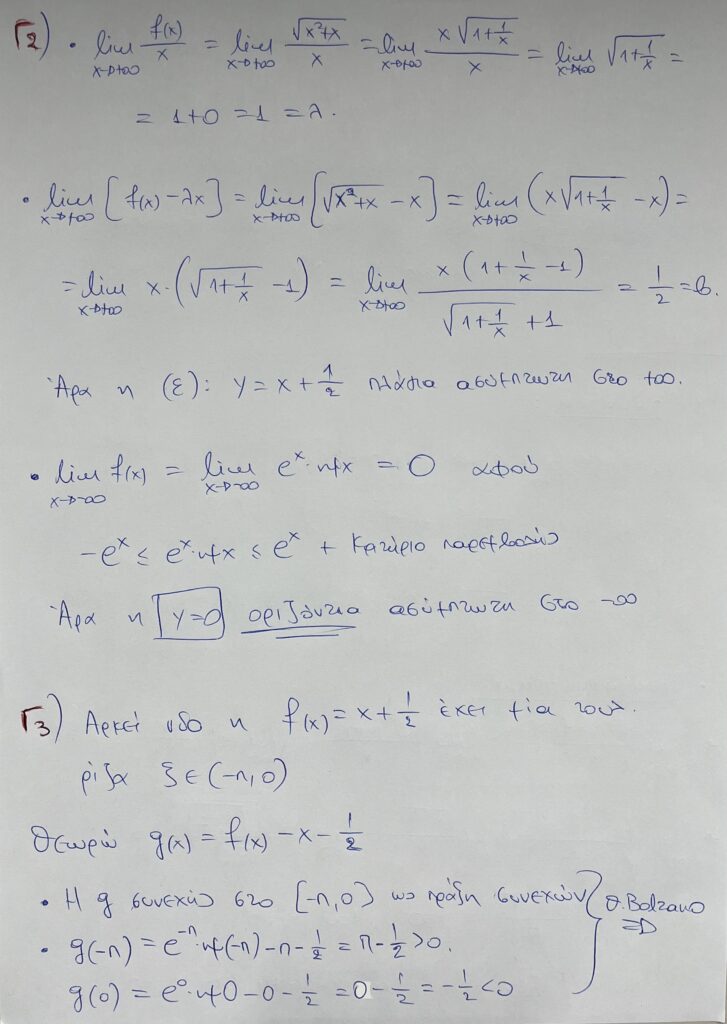 Γ2) • lim_{x→+∞} f(x)/x = lim_{x→+∞} √(x²+x)/x = lim_{x→+∞} x√(1+1/x)/x = lim_{x→+∞} √(1+1/x) =
= 1+0 = 1 = λ.
• lim_{x→+∞} [f(x) - λx] = lim_{x→+∞} [√(x²+x) - x] = lim_{x→+∞} (x√(1+1/x) - x) =
= lim_{x→+∞} x·(√(1+1/x) - 1) = lim_{x→+∞} x(1+1/x-1)/(√(1+1/x)+1) = 1/2 = b.
Άρα η (ε): y = x + 1/2 πλάγια ασύμπτωτη στο +∞.
• lim_{x→-∞} f(x) = lim_{x→-∞} e^x·ημx = 0 αφού
-e^x ≤ e^x·ημx ≤ e^x + Κριτήριο παρεμβολής
Άρα η y=0 οριζόντια ασύμπτωτη στο -∞
Γ3) Αρκεί νδο η f(x) = x + 1/2 έχει μία τουλ.
ρίζα ξ∈(-π,0)
Θεωρώ g(x) = f(x) - x - 1/2
• Η g συνεχής στο [-π,0) ως πράξη συνεχών } Θ.Bolzano ⇒
• g(-π) = e^{-π}·ημ(-π) - π - 1/2 = π - 1/2 > 0.
g(0) = e^0·ημ0 - 0 - 1/2 = 0 - 1/2 = -1/2 < 0